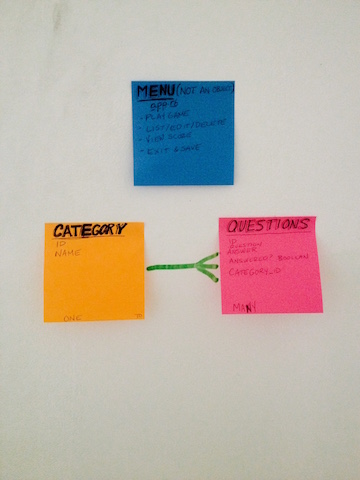 MENU (NOT AN OBJECT)
- PLAY GAME
- LIST/EDIT/DELETE
- VIEW SCORE
- EXIT & SAVE
CATEGORY
ID
NAME
ONE
TO
QUESTIONS
ID
QUESTION
ANSWER
ANSWERED? BOOLEAN
CATEGORY_ID
MANY